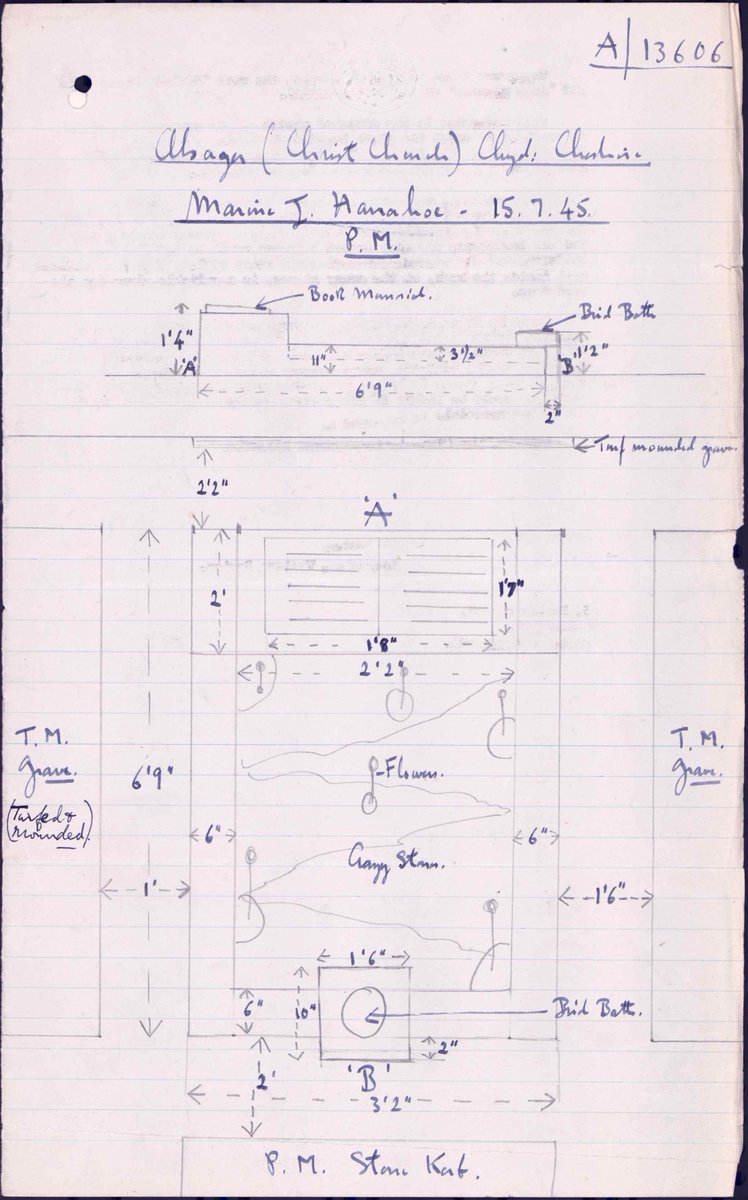 A/13606
Alsager (Christ Church) Chyd: Cheshire
Marine J. Hanahoe - 15.7.45.
P.M.
Book Memorial.
Bird Bath
1'4"
'A'
11"
3½"
'B'
1'2"
6'9"
2"
Turf mounded grave.
2'2"
'A'
2'
1'7"
1'8"
2'2"
T.M.
Grave.
(Turfed &
mounded).
6'9"
Flowers.
T.M.
Grave.
6"
6"
Crazy Stones.
1'
1'6"
1'6"
6"
10"
Bird Bath.
2"
'B'
2'
3'2"
P.M. Stone Kerb.